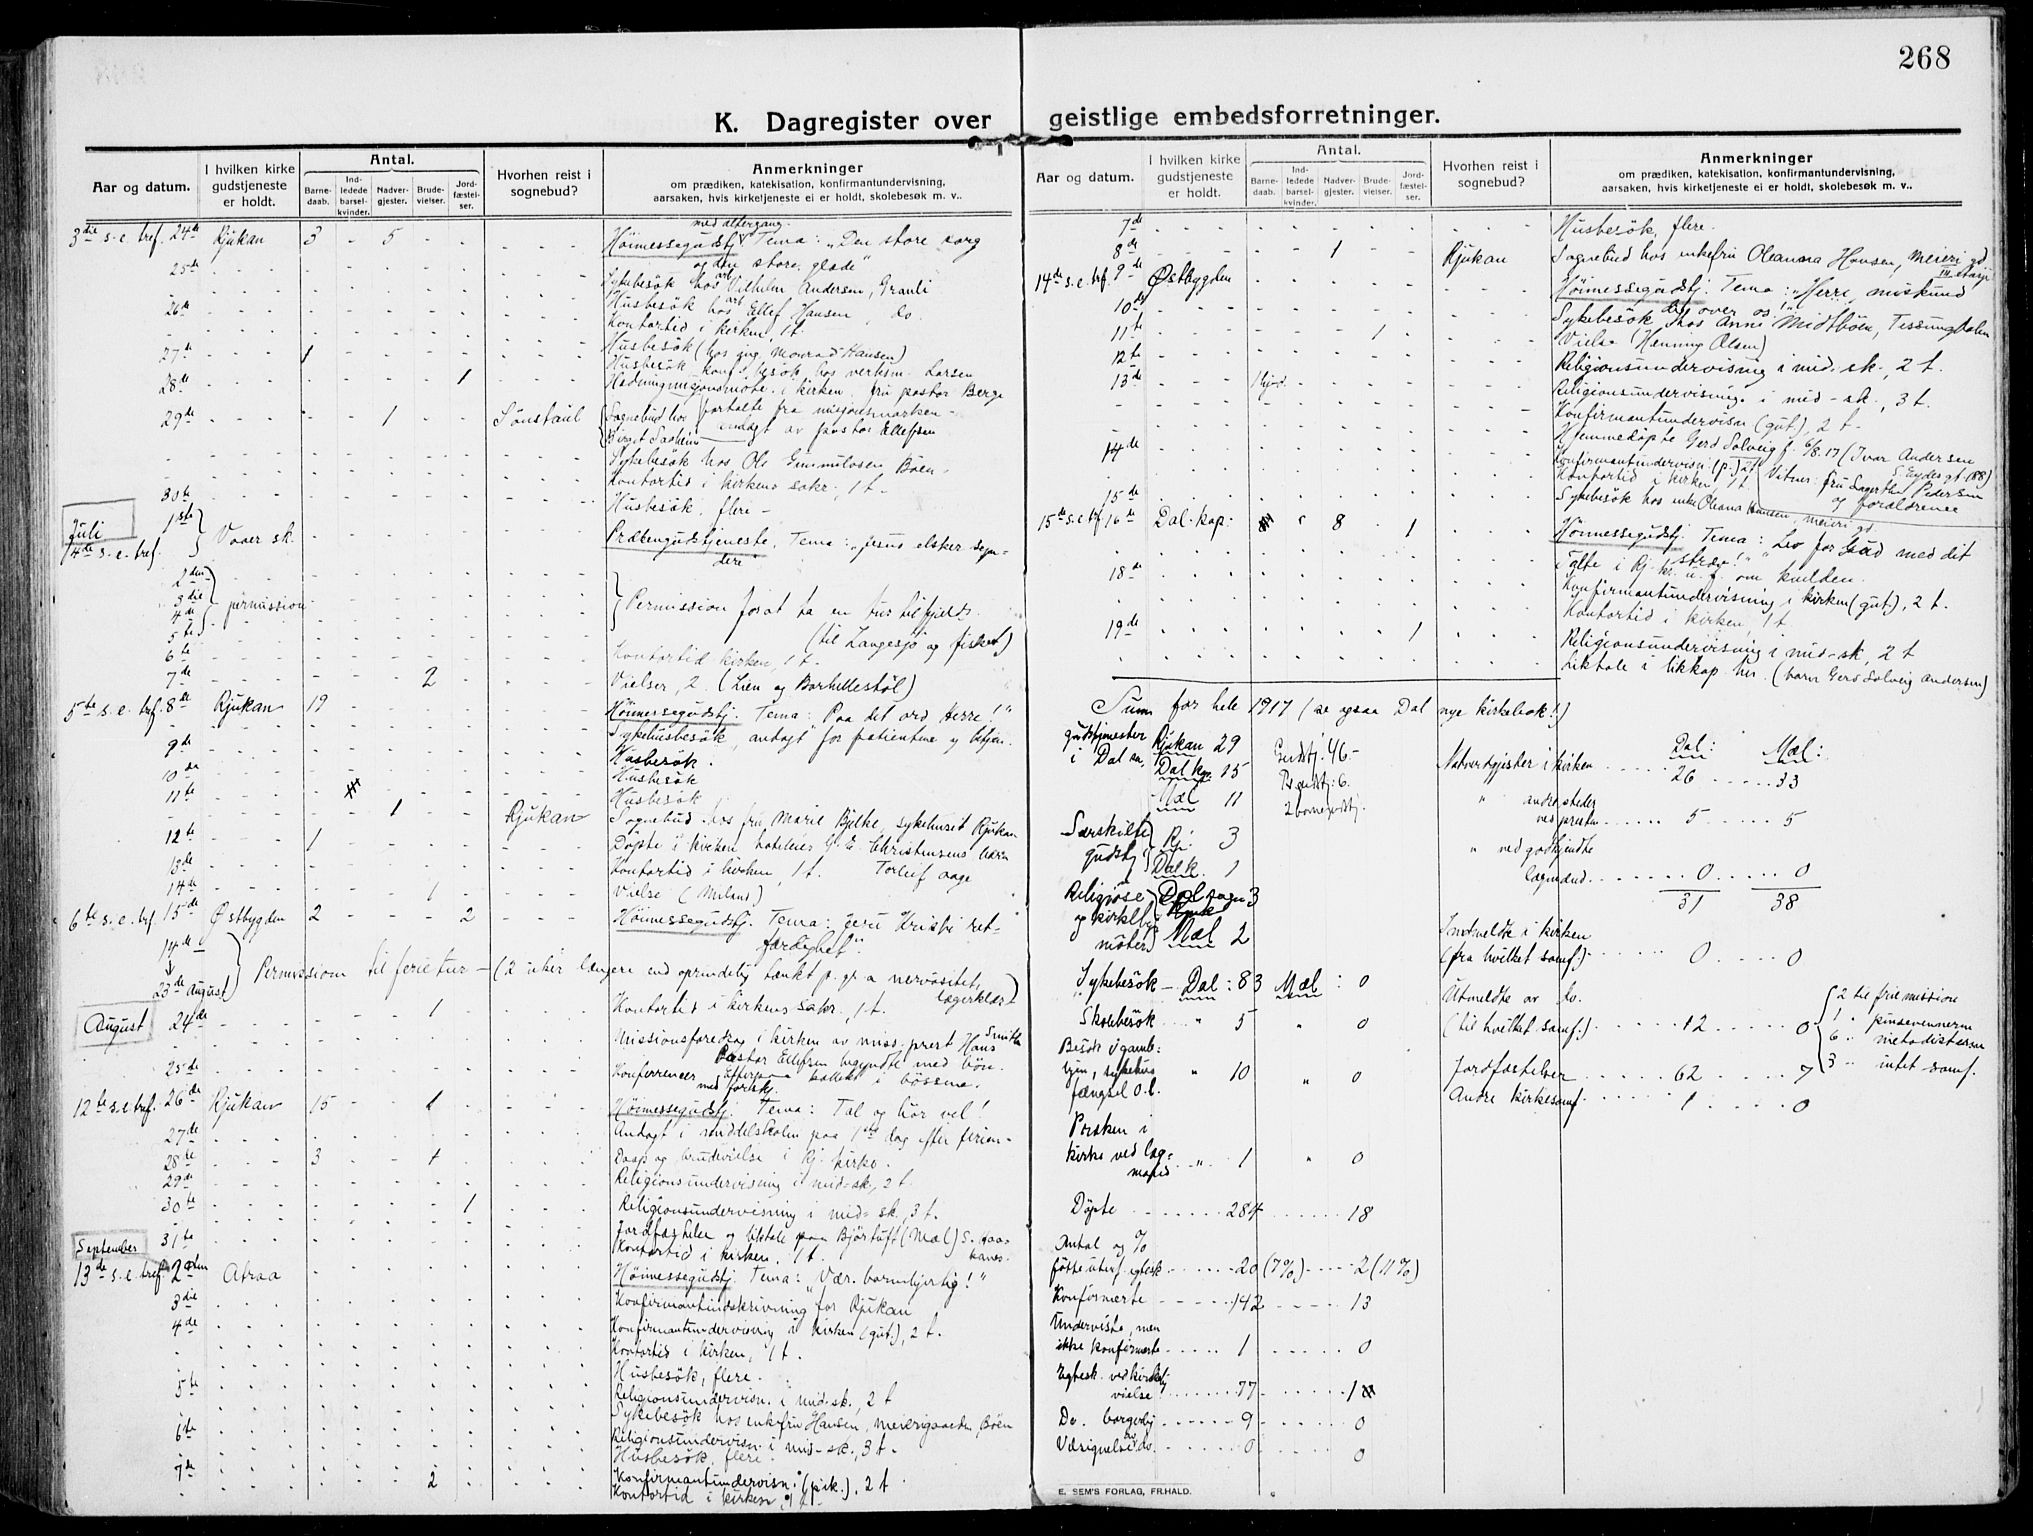 268
K. Dagregister over geistlige embedsforretninger.
Aar og datum.
I hvilken kirke gudstjeneste er holdt.
Antal.
Barne-daab.
Ind-ledede barsel-kvinder.
Nadver-gjester.
Brude-vielser.
Jord-fæstel-ser.
Hvorhen reist i sognebud?
Anmerkninger
om prædiken, katekisation, konfirmantundervisning,
aarsaken, hvis kirketjeneste ei er holdt, skolebesøk m. v..
med altergang
3die s. e. tref. 24de Rjukan 3 - 5 Høimessegudstj. Tema: "Den store sorg
og den store glæde"
25de Sykebesök hos Vilhelm Andersen, Granli
26de Husbesök hos Ellef Hansen do.
Kontortid i kirken, 1 t.
27de 1 Husbesök (hos Monrad Hansen)
28de 1 Husbesök, Larsen
Hedningmisjonsmöte i kirken. fru pastor Berge
29de 1 Sönstaul Sognebud hos fortalte fra misjonsmarken -
Birgit andagt av pastor Ellefsen
Sykebesök hos Ole Gunnulvsen Böen -
Kontortid i kirkens sakr., 1 t.
30te Husbesök, flere -
Juli
1ste
4de s. e. tref. Vaaer sk. Præken gudstjeneste. Tema: "Jesus elsker
2den
3die
4de permission Permission forat ta en tur tilfjelds.
5te (til Langesjø og fisket)
6te Kontortid kirken, 1 t.
7de 2 Vielser, 2. (Lien og Borhellestöl)
5te s. e. tref. 8de Rjukan 19 Høimessegudstj. Tema: "Paa det ord Herre!"
Sykehusbesök, andagt for patienterne og betjen.
9de Husbesök.
10de Husbesök
11te Husbesök
1 Rjukan Sognebud hos fru Marie Bjelke, sykehuset Rjukan
12te 1 Döpte i kirken hoteleier G. E. Christensens barn
13de Kontortid i kirken, 1 t. Torleif Aage
14de 1 Vielse (Miland)
6te s. e. tref. 15de Østbygden 2 - - 2 Høimessegudstj. Tema: Jesu Kristi ret-
færdighet".
17de
23de August Permission til ferietur - (2 uker længere end oprindelig tænkt p. gr. a nervøsitet,
lægerklært)
August 24de 1 Kontortid i kirkens sakr., 1 t.
Missionsforedrag i kirken av miss. prest Hans Smith
Pastor Ellefsen begyndte med bön.
25de Konferrencer kollekt i bössene.
med forskj.
12te s. e. tref. 26de Rjukan 15 - - 1 Høimessegudstj. Tema: Tal og hör vel!
27de Andagt i middelskolen paa 1ste dag efter ferien -
28de 3 - - 1 Daap og brudevielse i Rj. kirke.
29de Religionsundervisning i mid-sk., 2 t.
30te 1 Religionsundervisning i mid-sk., 3 t.
31te Jordfæstelse og liktale paa Björtuft (Mæl)
September Kontortid i kirken, 1 t.
13de s. e. tref. 2den Atraa Høimessegudstj. Tema: "Vær barmhjertig!"
3die Konfirmantindskrivning for Rjukan
4de Konfirmantundervisning i kirken (gut.), 2 t.
Kontortid i kirken, 1 t.
Husbesök, flere.
5te Religionsundervisn. i mid-sk., 2 t
Sykebesök hos enkefru Hansen, meierigaarden, Böen
6te Religionsundervisn. i mid-sk., 3 t.
Husbesök, flere.
7de 2 Konfirmantundervisn. (pik.), 2 t.
Kontortid i kirken, 1 t.
Aar og datum.
I hvilken kirke gudstjeneste er holdt.
Antal.
Barne-daab.
Ind-ledede barsel-kvinder.
Nadver-gjester.
Brude-vielser.
Jord-fæstel-ser.
Hvorhen reist i sognebud?
Anmerkninger
om prædiken, katekisation, konfirmantundervisning,
aarsaken, hvis kirketjeneste ei er holdt, skolebesøk m. v..
7de Husbesök, flere.
8de 1 Rjukan Sognebud hos enkefru Oleanna Hansen, meierigd.
14de s. e. tref. 9de Østbygden Høimessegudstj. Tema: "Herre, miskund
dig over os!"
10de Sykebesök hos Anne Midtböen, Tessungdalen
11te 1 Vielse (Henning Olsen)
12te Religionsundervisning i mid-sk., 2 t.
13de 1 hjd. Religionsundervisning i mid-sk., 3 t.
Konfirmantundervisn (gut.), 2 t.
Hjemmedöpte Gerd Solveig f. 6/8.17 (Ivar Andersen
14de Konfirmantundervisn. (p.) 2 t. S. Eydes gt. 88)
Kontortid i kirken, 1 t. Vitner: fru Pedersen
15de Sykebesök hos enke Oleana Hansen, meierigd. og forældrene
15de s. e. tref. 16de Dal. kap. 8 - 1 Høimessegudstj. Tema: Lev for Gud med dit
stræv!"
i Rj. k. u. f. om kvelden.
18de Konfirmantundervisning i kirken (gut.), 2 t.
Kontortid i kirken, 1 t
19de 1 Religionsundervisning i mid-sk, 2 t
Liktale i likkap. her. (barn Gerd Solveig Andersen)
Sum for hele 1917 (se ogsaa Dal nye kirkebok!)
gudstjenester Rjukan 29 Gudstj: 46 -
i Dal sn. Dal kp. 15 6.
Mæl 11 2 barnegudstj.
Særskilte Rj: 3
gudstj. Dal k. 1
Religiöse Dal sogn 3
og kirkelige
möter Mæl 2
Sykebesök - Dal : 83 Mæl : 0
Skolebesök " 5 " 0
Besök i gamle-
hjem, sykehus " 10 " 0
fængsel o. l.
Præken i
kirke ved læg-
mænd " 1 " 0
Döpte 284 18
Antal og %
födte utenf. egtesk. 20 (7%) 2 (11%)
Konfirmerte 142 13
Underviste, men
ikke konfirmerte 1 0
Egtesk. ved kirkelig
vielse 77 1
Do. borgerlig 9 0
Velsignelse av do. 0 0
Dal: Mæl:
Natverdgjester i kirken 26 33
" andre steder
ved presten 5 5
" ved godkjendte
lægmænd 0 0
31 38
Indmeldte i kirken
(fra hvilket samf.) 0 0
Utmeldte av do.
(til hvilket samf.) 12 0
2 til frie mission
1 " pinsevennerne
6 " metodisterne
3 " intet samf.
Jordfæstelser 62 7
Andre kirkesamf. 1 0
E. SEM'S FORLAG, FR.HALD.